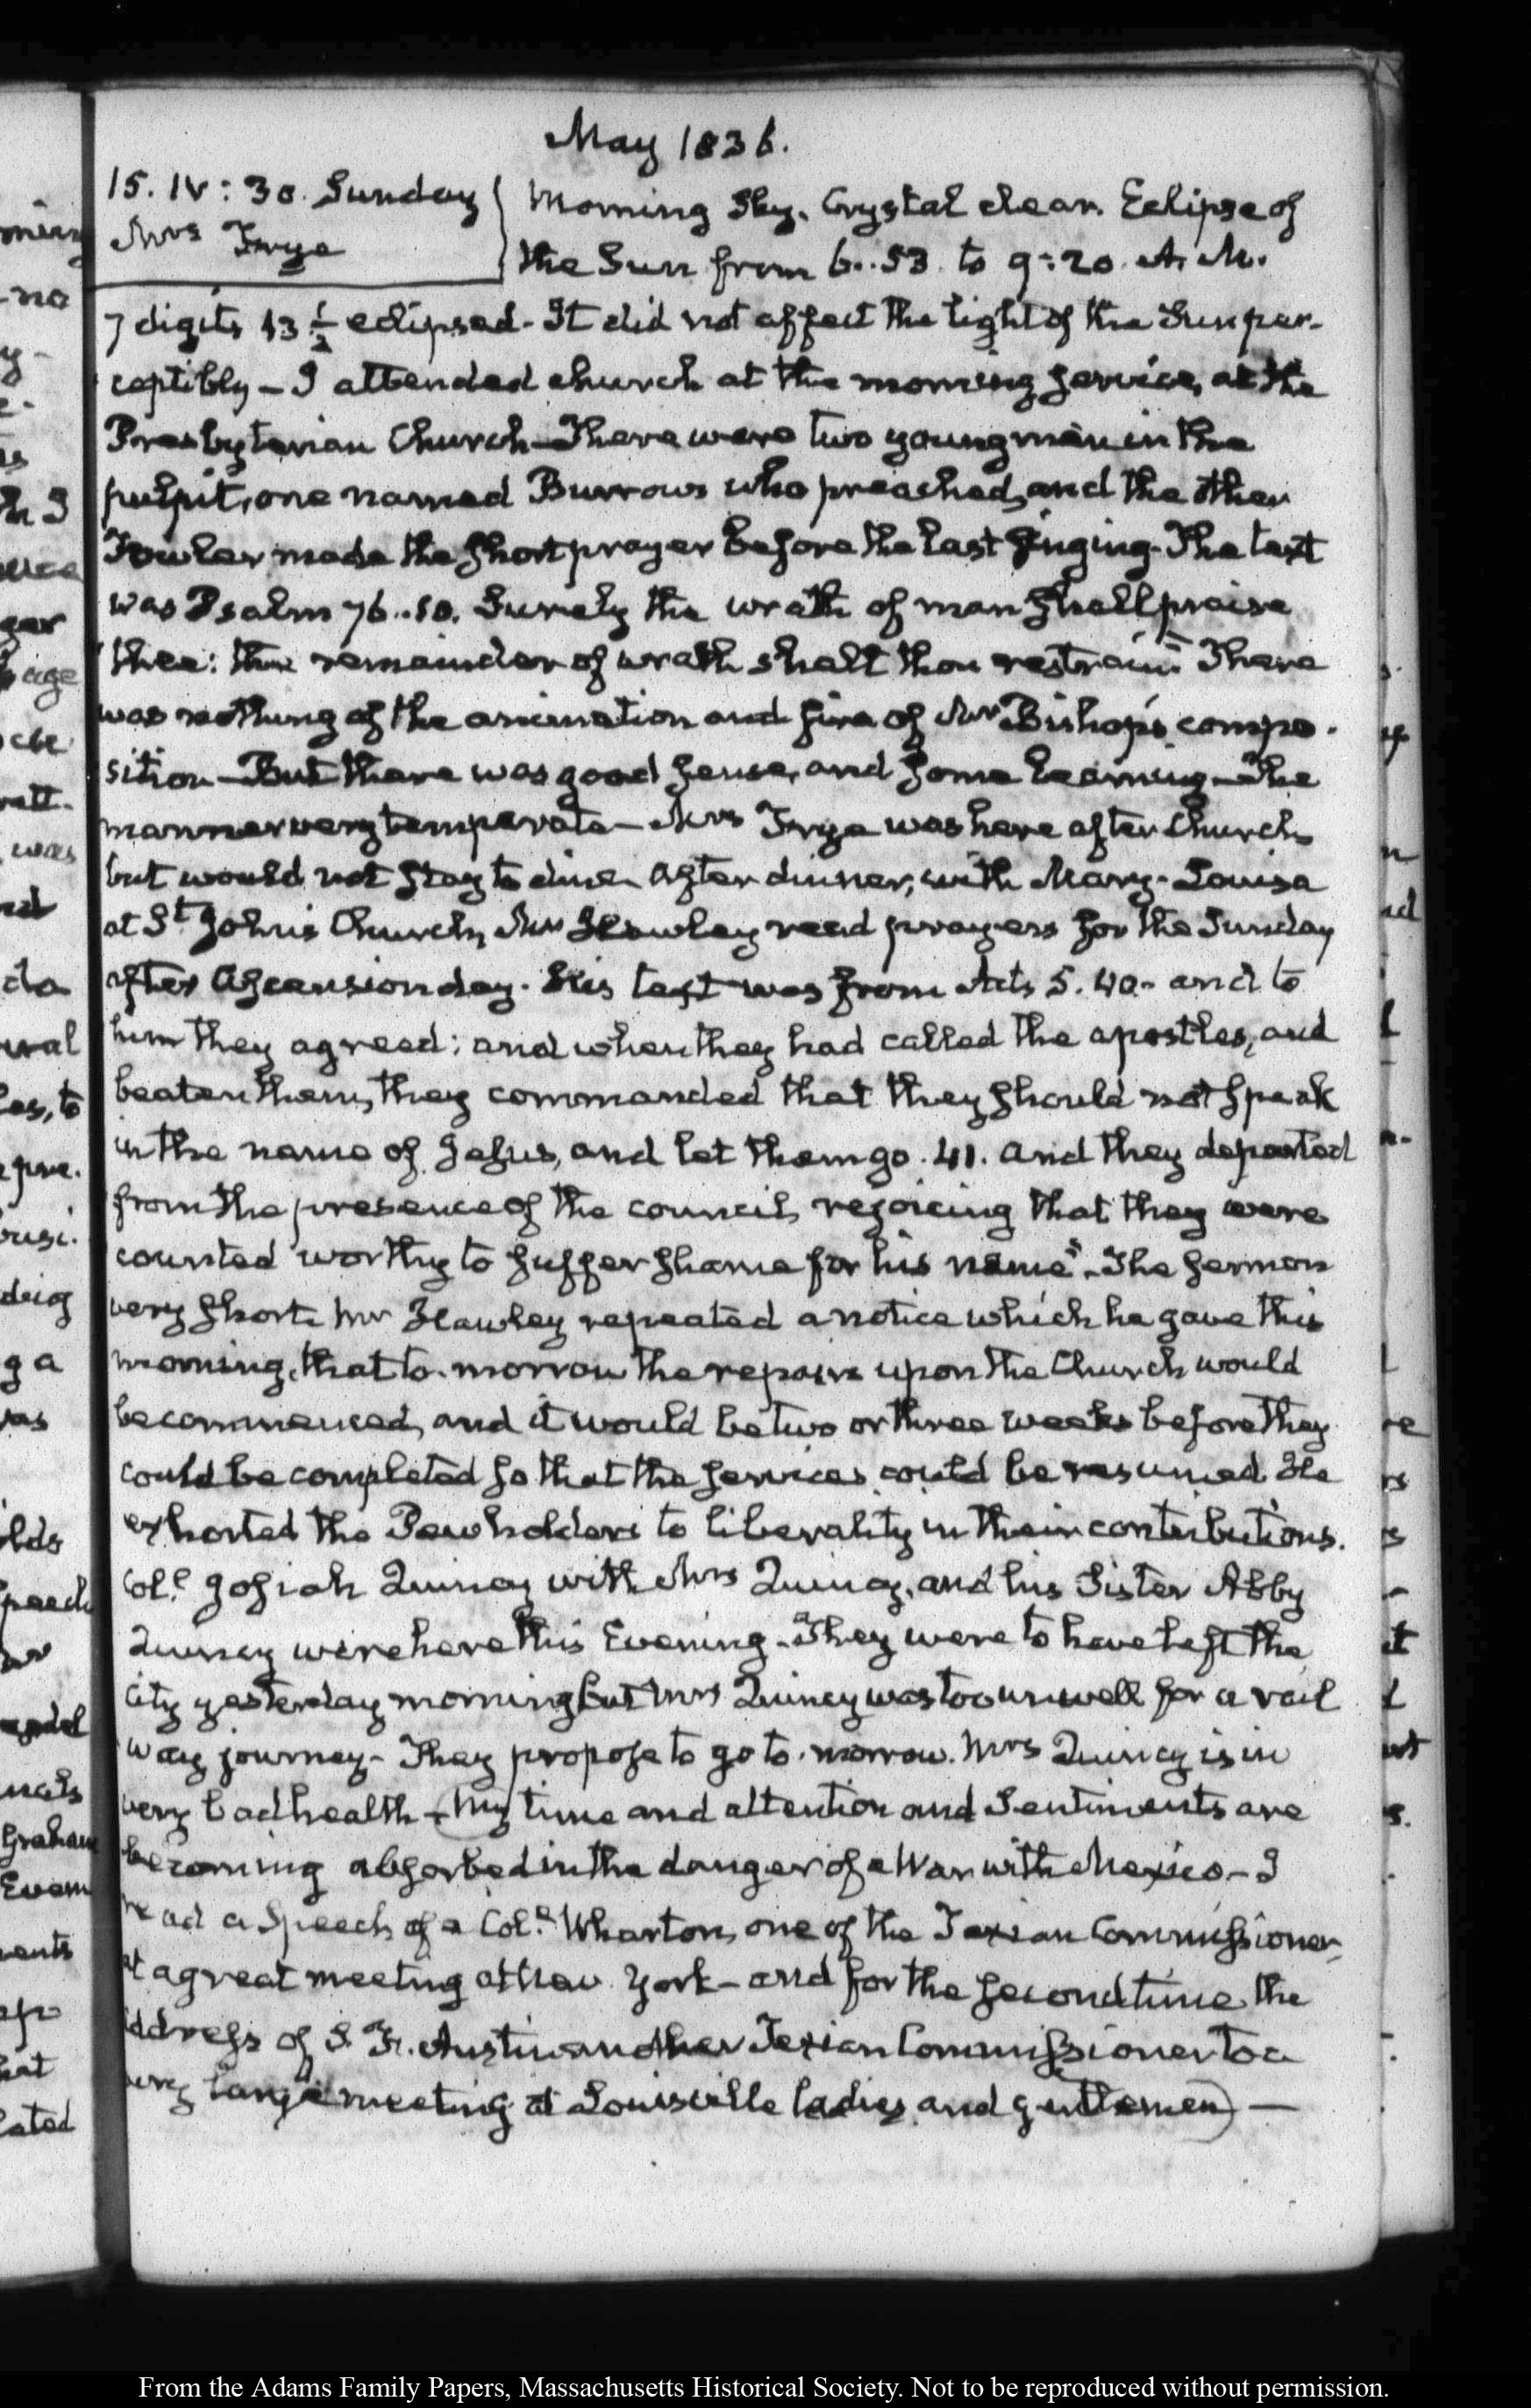 May 1836.
15. IV: 30. Sunday
Mrs Frye
Morning Sky. Crystal clear. Eclipse of
the Sun from 6..53. to 9:20. A. M.
7 digits 43 ½ eclipsed - It did not affect the light of the Sun per-
ceptibly - I attended church at the morning service, at the
Presbyterian Church - There were two young men in the
pulpit, one named Burrows who preached, and the other
Fowler made the short prayer before the last singing - The text
was Psalm 76..10. Surely the wrath of man shall praise
thee: the remainder of wrath shalt thou restrain" There
was nothing of the animation and fire of Mr Bishop's compo-
sition - But there was good sense, and some learning - The
manner very temperate - Mrs Frye was here after Church
but would not stay to dine. After dinner, with Mary-Louisa
at St. John's Church, Mr Hawley read prayers for the Sunday
after Ascension day. His text was from Acts 5. 40. and to
him they agreed; and when they had called the apostles, and
beaten them, they commanded that they should not speak
in the name of Jesus, and let them go. 41. And they departed
from the presence of the council, rejoicing that they were
counted worthy to suffer shame for his name" - The sermon
very short. Mr Hawley repeated a notice which he gave this
morning, that to-morrow the repairs upon the Church would
be commenced, and it would be two or three weeks before they
could be completed so that the services could be resumed. He
exhorted the Pewholders to liberality in their contributions.
Coll. Josiah Quincy with Mrs Quincy, and his Sister Abby
Quincy were here this Evening - They were to have left the
City yesterday morning but Mrs Quincy was too unwell for a rail
way journey - They propose to go to-morrow. Mrs Quincy is in
very bad health - (My time and attention and Sentiments are
becoming absorbed in the danger of a War with Mexico - I
read a Speech of a Coll. Wharton, one of the Texian Commissioners
at a great meeting at New York - and for the second time the
Address of S. F. Austin another Texian Commissioner to a
very large meeting at Louisville ladies and gentlemen) -
From the Adams Family Papers, Massachusetts Historical Society. Not to be reproduced without permission.